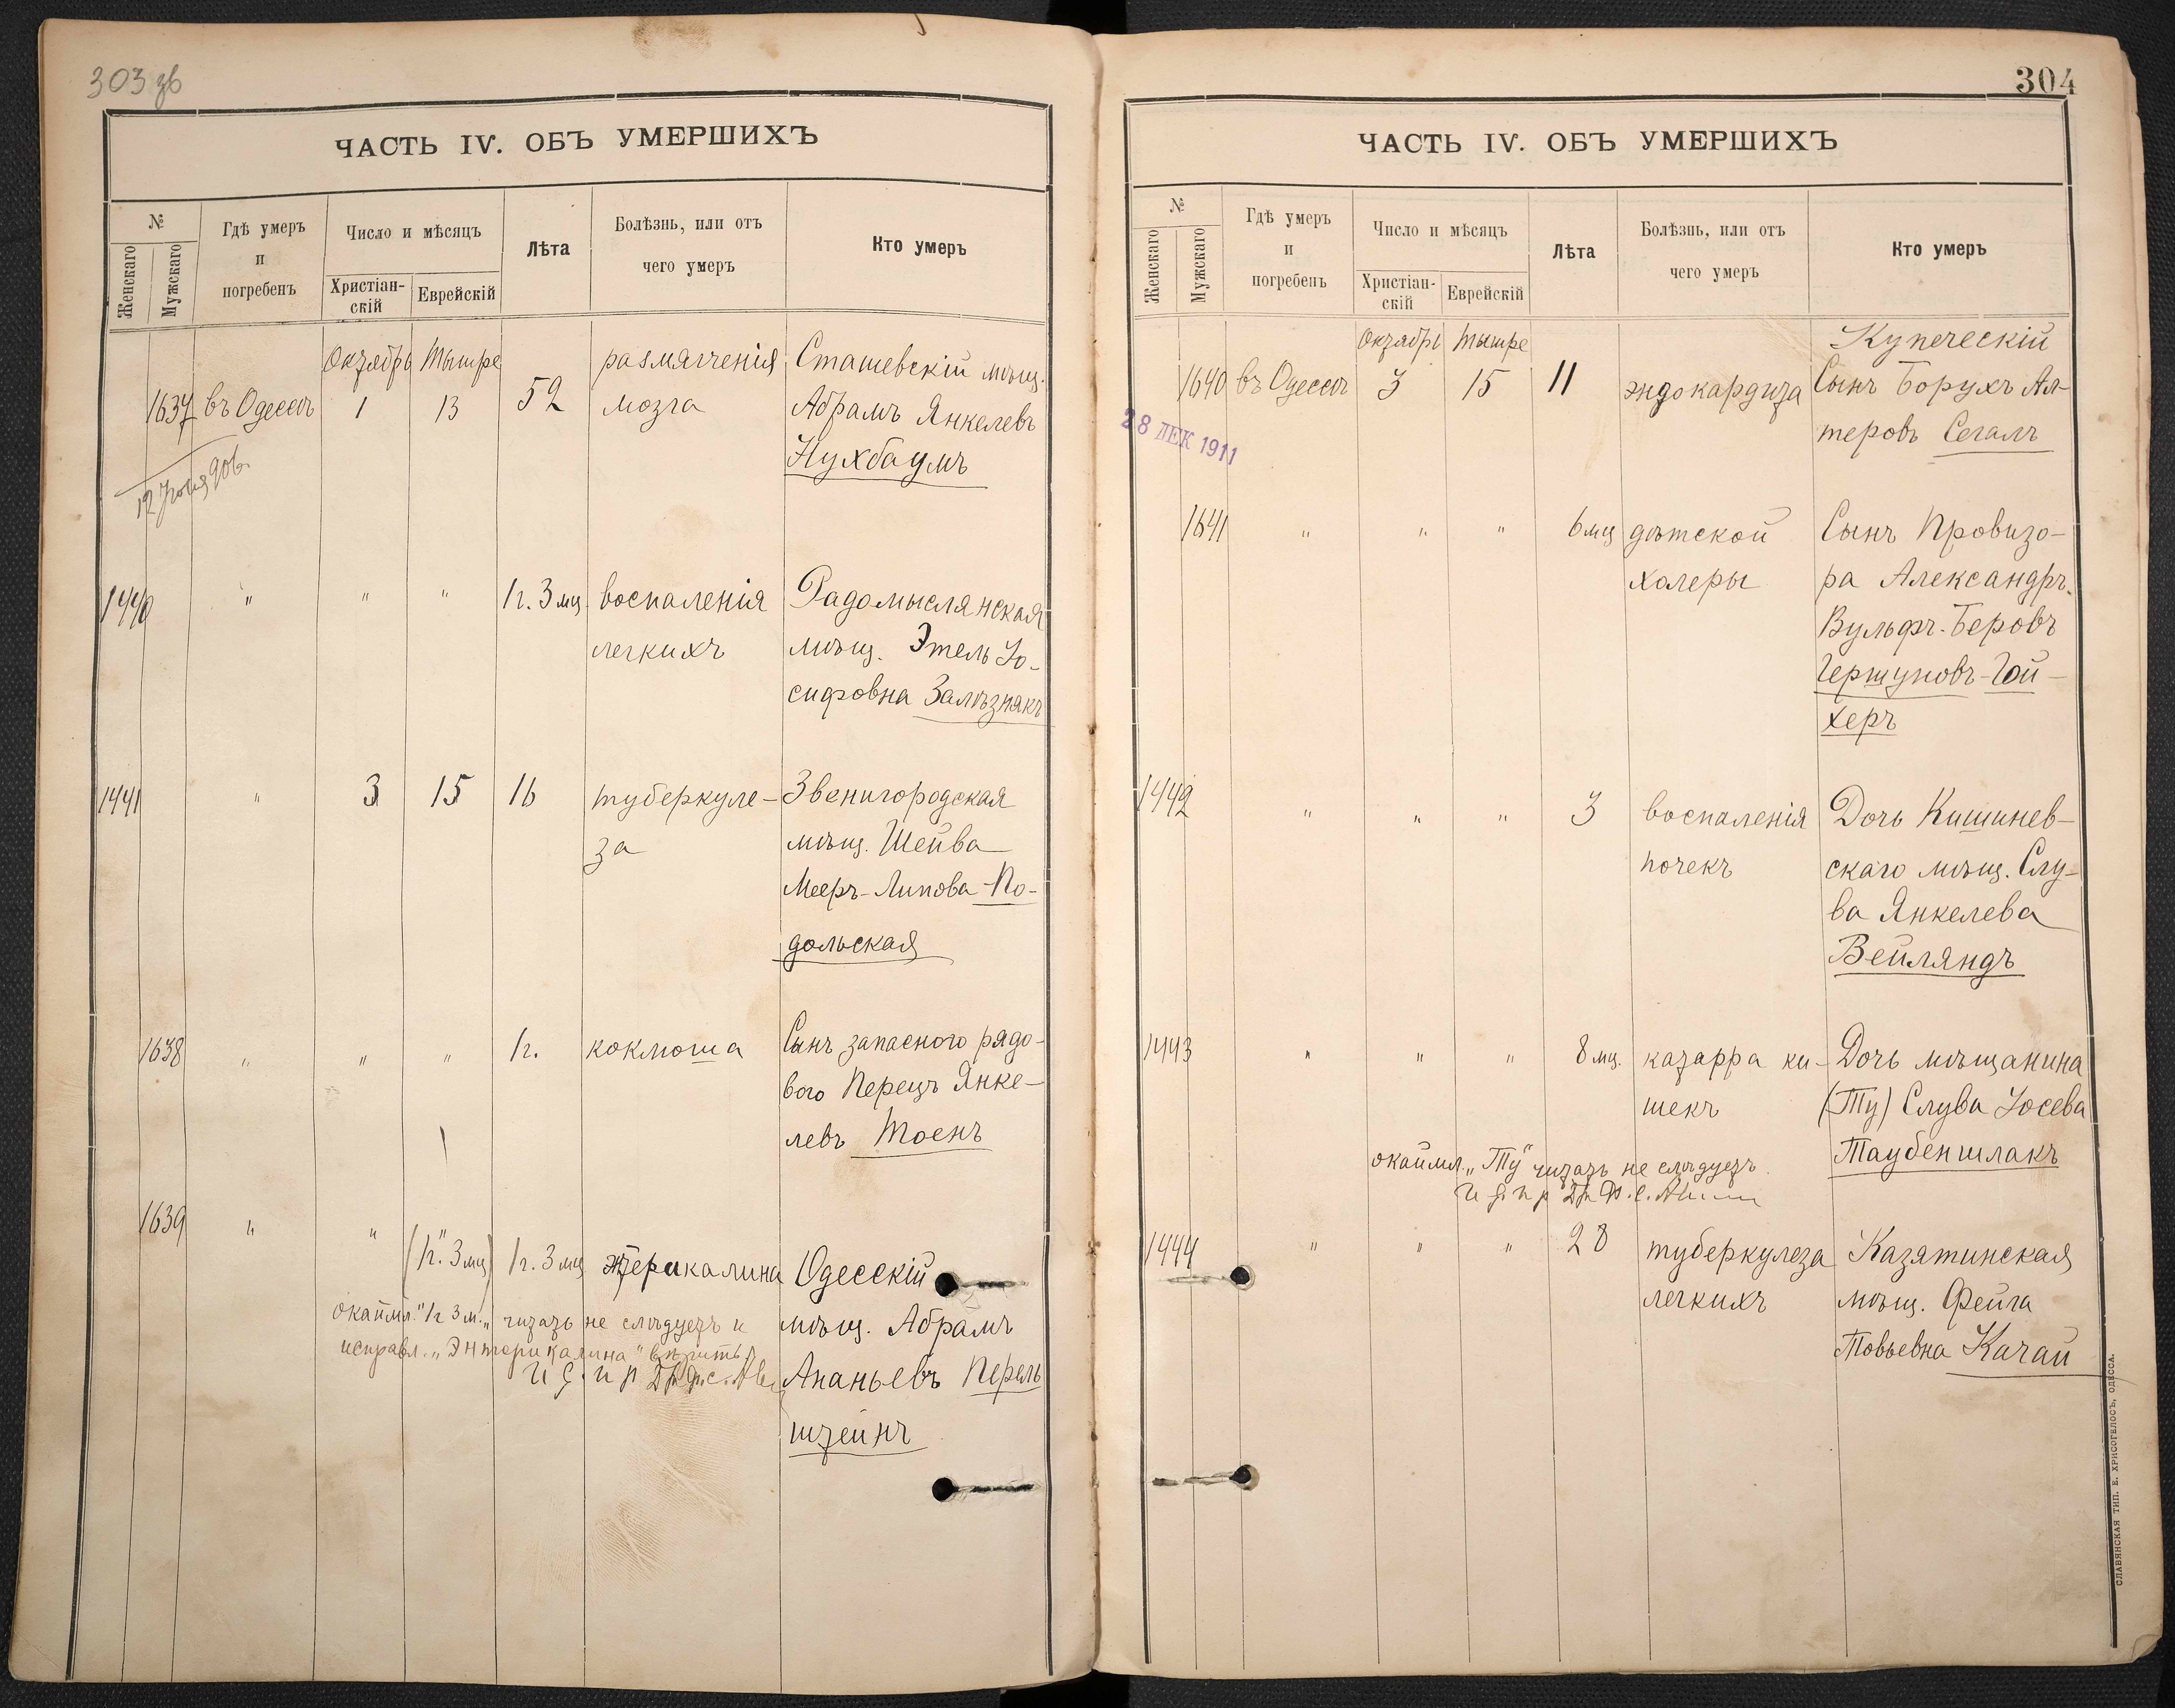 303 зв
ЧАСТЬ IV. ОБЪ УМЕРШИХЪ
№
Женскаго
Мужскаго
Гдѣ умеръ
и
погребенъ
Число и мѣсяцъ
Христіан-
скій
Еврейскій
Лѣта
Болѣзнь, или отъ
чего умеръ
Кто умеръ
Октябрь Тышре
1637 въ Одессѣ 1 13 52 размягченія
мозга
Сташевскій мѣщ.
Абрамъ Янкелевъ
Нухбаумъ
1440 " " " 1 г. 3 мц. воспаленія
легкихъ
Радомыслянская
мѣщ. Этель Іо-
сифовна Залѣзнякъ
1441 " 3 15 16 туберкуле-
за
Звенигородская
мѣщ. Шейва
Мееръ-Липова По-
дольская
1638 " " " 1 г. коклюша
Сынъ запасного рядо-
вого Перецъ Янке-
левъ Тоенъ
1639 " " (1 г. 3 мц) 1 г. 3 мц
Одесскій
мѣщ. Абрамъ
Ананьевъ Перель
штейнъ
окаймл. "1 г 3 м." читать не слѣдуетъ и
исправл. "Энтерикалина" вѣрить
304
ЧАСТЬ IV. ОБЪ УМЕРШИХЪ
№
Женскаго
Мужскаго
Гдѣ умеръ
и
погребенъ
Число и мѣсяцъ
Христіан-
скій
Еврейскій
Лѣта
Болѣзнь, или отъ
чего умеръ
Кто умеръ
Октябрь Тышре
1640 въ Одессѣ 3 15 11 эндокардита
Купеческій
Сынъ Борухъ Ал-
теровъ Сегалъ
28 ДЕК 1911
1641 " " " 6 мц дѣтской
холеры
Сынъ Провизо-
ра Александръ.
Вульфъ-Беровъ
Гершуновъ-Гой-
херъ
1442 " " " 3 воспаленія
почекъ
Дочь Кишинев-
скаго мѣщ. Слу-
ва Янкелева
Вейляндъ
1443 " " " 8 мц. катарра ки-
шекъ
Дочь мѣщанина
(Ту) Слува Іосева
Таубеншлакъ
окаймл. "Ту" читать не слѣдуетъ.
1444 " " " 28 туберкулеза
легкихъ
Казятинская
мѣщ. Фейга
Товьевна Качай
СЛАВЯНСКАЯ ТИП. Е. ХРИСОГЕЛОСЪ, ОДЕССА.